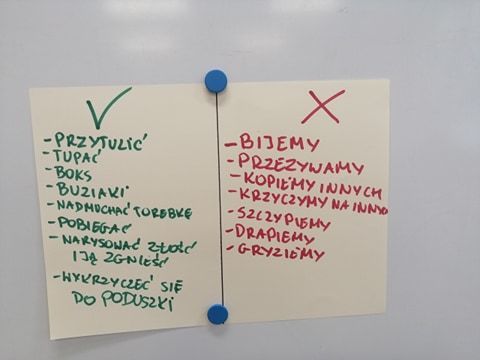 - PRZYTULIĆ
- TUPAĆ
- BOKS
- BUZIAKI
- NADMUCHAĆ TOREBKĘ
- POBIEGAĆ
- NARYSOWAĆ ZŁOŚĆ
I JĄ ZGNIEŚĆ
- WYKRZYCZEĆ SIĘ
DO PODUSZKI
- BIJEMY
- PRZEZYWAMY
- KOPIEMY INNYCH
- KRZYCZYMY NA INNYCH
- SZCZYPIEMY
- DRAPIEMY
- GRYZIEMY